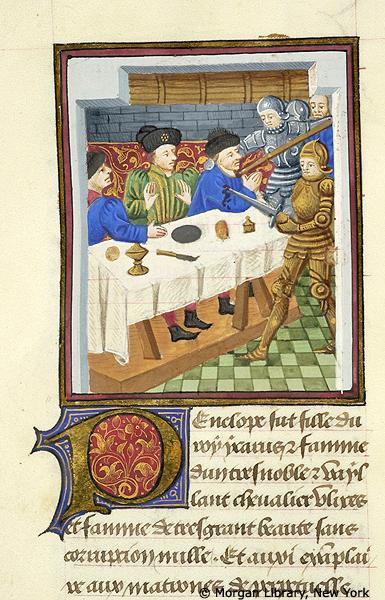 Penelope fut fille du
roy ycarus ⁊ famme
dun tresnoble ⁊ vayl
lant chevalier vlixes
et famme de tresgrant beaute sans
corrupcion nulle . Et auxi exemplai
re aux matrones de perpetuelle
© Morgan Library, New York